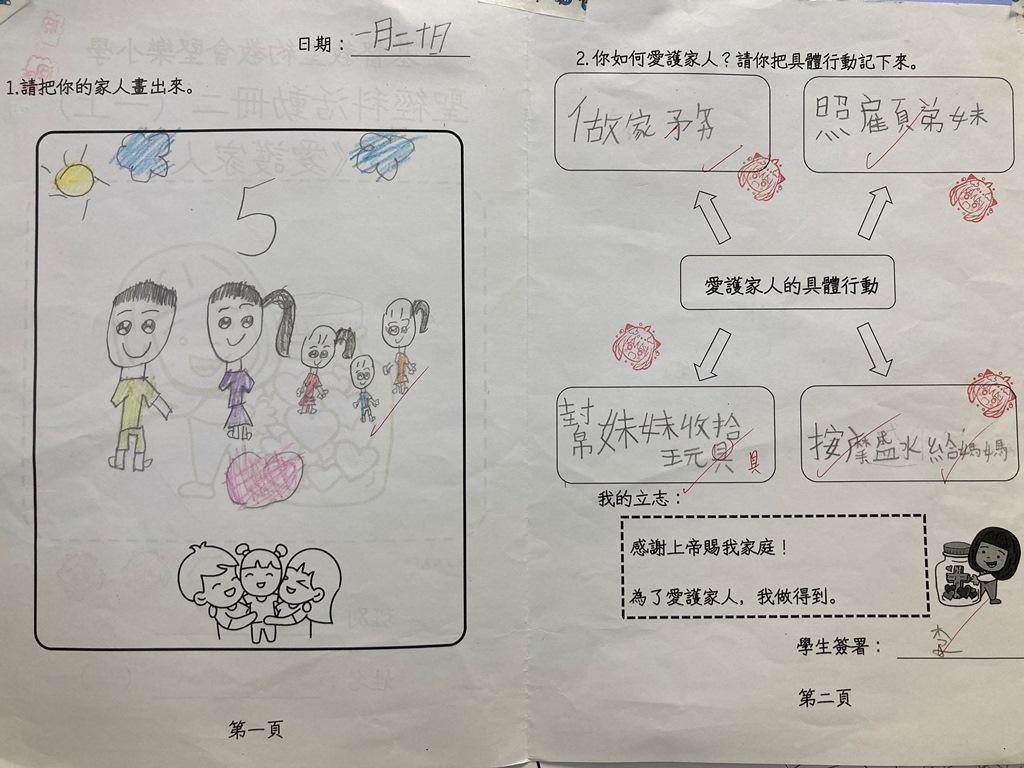 日期：一月二十月
1.請把你的家人畫出來。
5
第一頁
2.你如何愛護家人？請你把具體行動記下來。
做家務
照雇頁弟妹
愛護家人的具體行動
幫妹妹收拾
玩具 具
按摩盛水給媽媽
我的立志：
感謝上帝賜我家庭！
為了愛護家人，我做得到。
學生簽署：李
第二頁